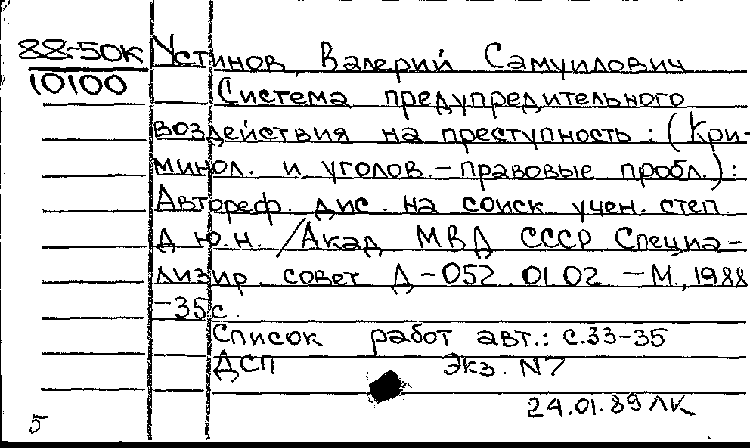 88-50К Устинов, Валерий Самуилович
10100 Система предупредительного
воздействия на преступность : (Кри-
минол. и уголов.-правовые пробл.) :
Автореф. дис. на соиск. учен. степ.
д.ю.н. /Акад МВД СССР Специа-
лизир. совет Д-052.01.02 - М., 1988
-35 с.
Список работ авт.: с.33-35
ДСП Экз. N7
24.01.89 ЛК
5